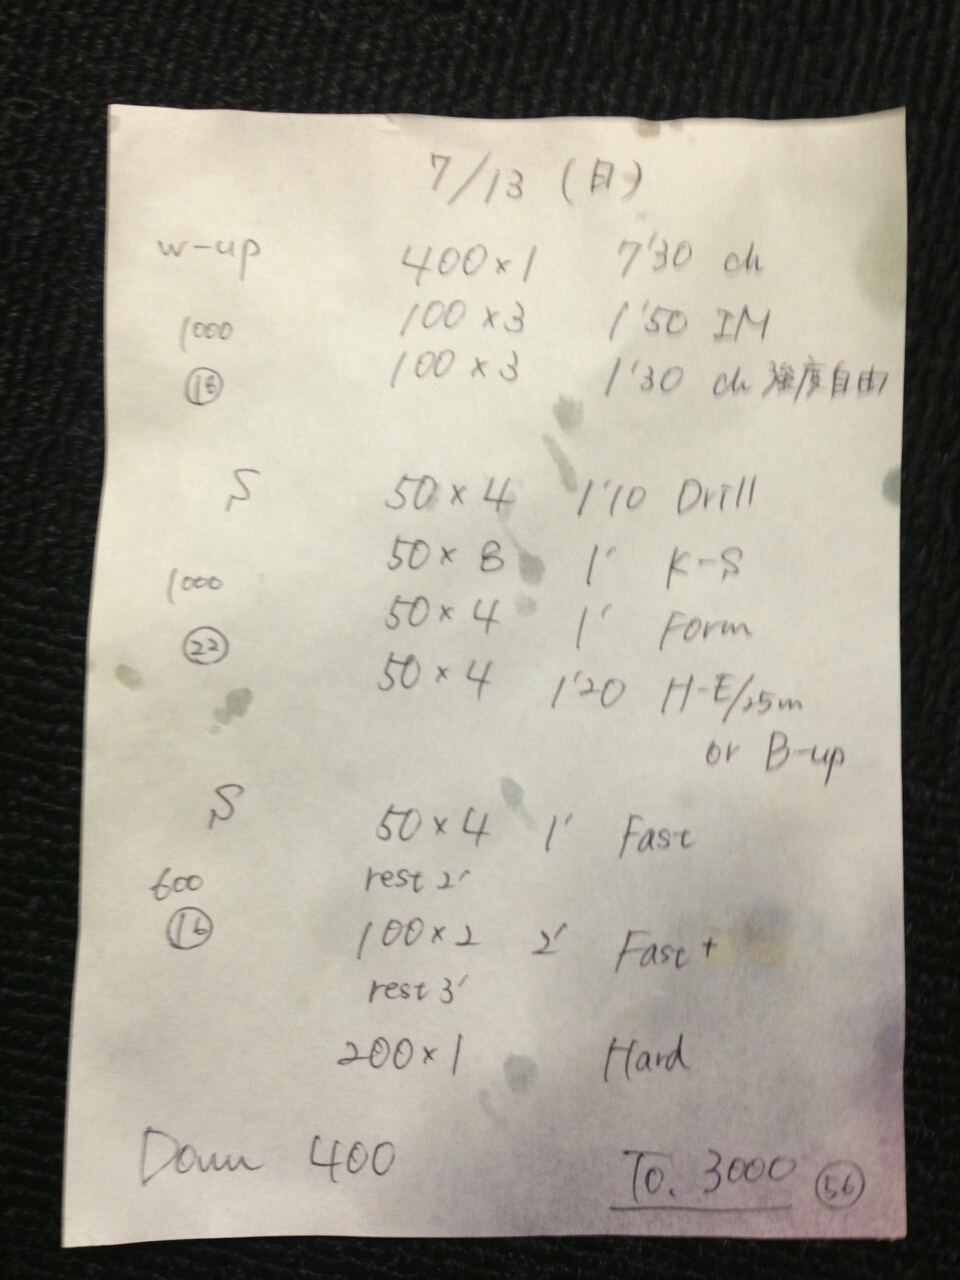 7/13 (日)
w-up 400×1 7'30 ch
1000 100×3 1'50 IM
⑱ 100×3 1'30 ch 強度自由
S 50×4 1'10 Drill
50×8 1' K-S
1000 50×4 1' Form
㉒ 50×4 1'20 H-E/25m
or B-up
S 50×4 1' Fast
600 rest 2'
⑯ 100×2 2' Fast+
rest 3'
200×1 Hard
Down 400 To. 3000 (56)